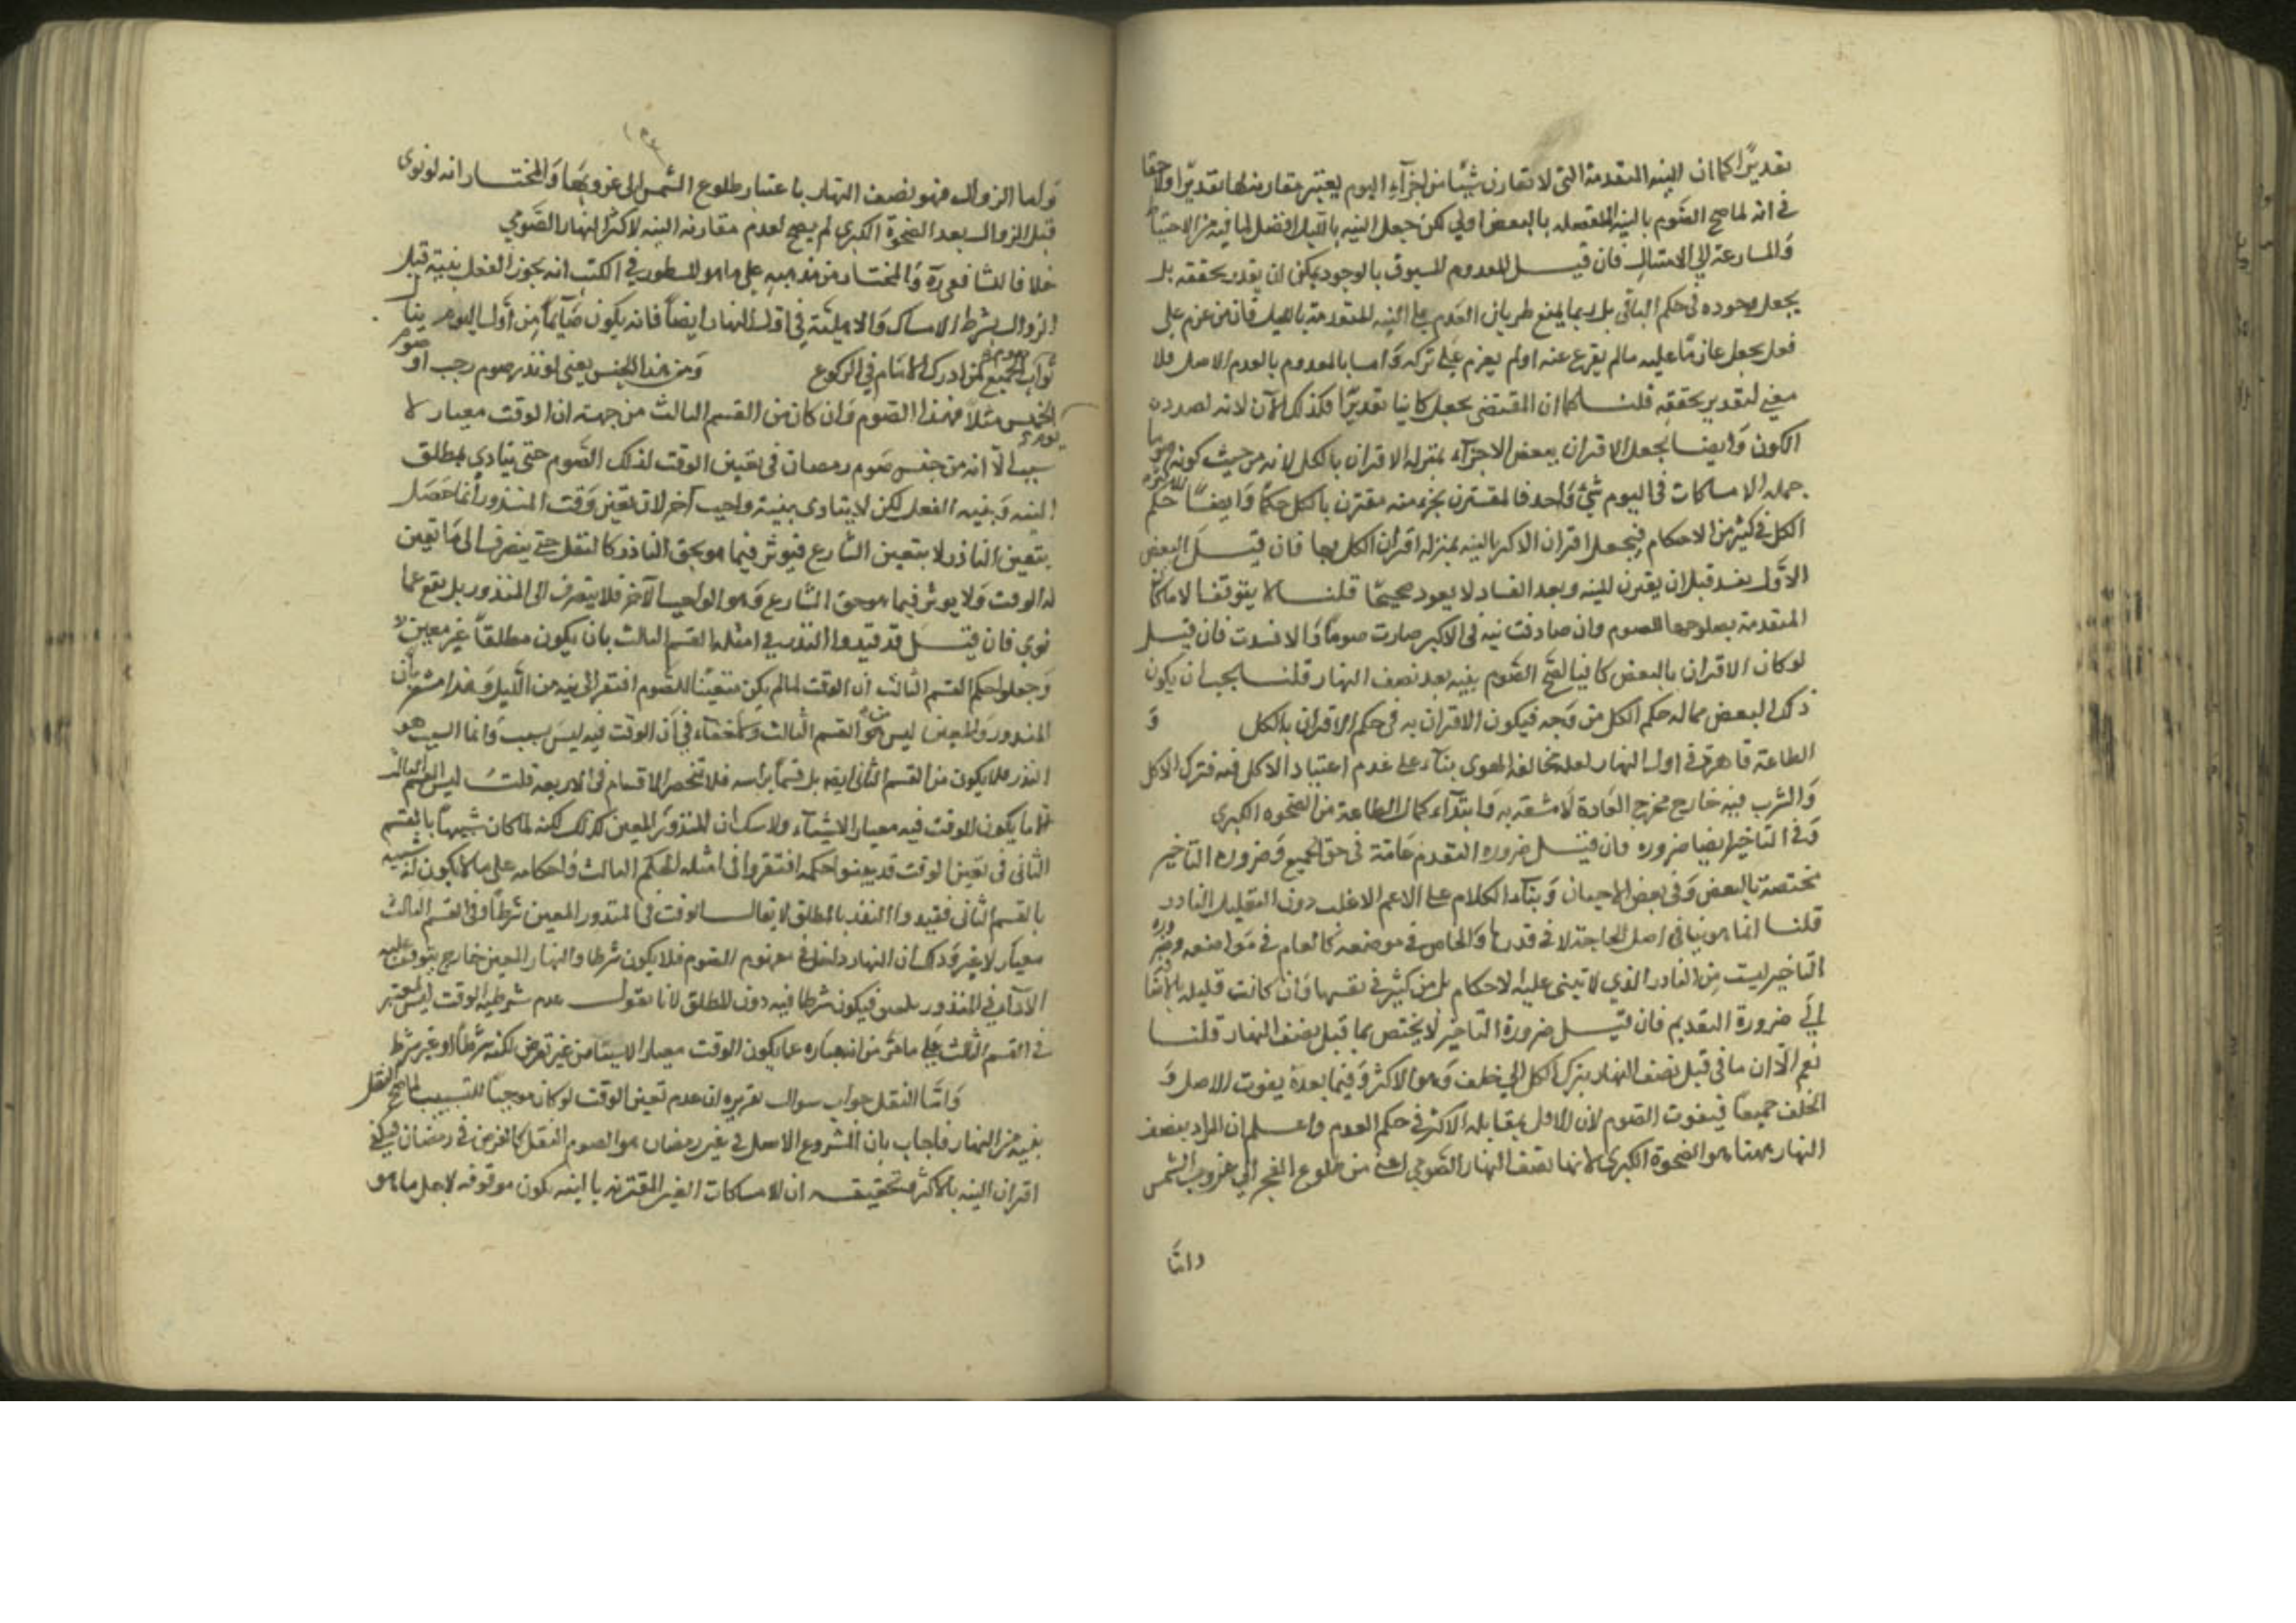 تقديرًا كما ان النية المتقدمة التى لا تقارن شيئا من اجزاء اليوم يعتبر مقارنتها تقديرا ولا خفا
فى انه لما صح الصوم بالنية المنفصلة بالبعض اولى لكن جعل النية بالليل افضل لما فيه من الاحتياط
والمسارعة الى الامتثال فان قيل المعدوم المسبوق بالوجود يمكن ان يقدر تحققه بل
يجعل وجوده فى حكم الباقى بل ربما يمنع طريان العدم على النية المتقدمة بالليل فان من عزم على
فعل يجعل عازما عليه مالم يفرغ عنه اولم يعزم على تركه واما بالمعدوم بالعدم الاصل فلا
معنى لتقدير تحققه قلنا كما ان المقتضى يجعل كائنا تقديرا فكذلك الآن لانه لصدد
الكون وايضا يجعل الاقتران ببعض الاجزاء بمنزلة الاقتران بالكل لانه من حيث كونه صوما
جملة الامساكات فى اليوم شئ واحد فالمقترن بجزء منه مقترن بالكل حكما وايضا للاكثر حكم
الكل فى كثير من الاحكام فيجعل اقتران الاكثر بالنية بمنزلة اقتران الكل بها فان قيل البعض
الاول يفسد قبل ان يقترن النية وبعد الفساد لا يعود صحيحا قلنا لا يتوقف الامساكات
المتقدمة بصلوحها للصوم وان صادفت نية فى الاكثر صارت صوما والا فسدت فان قيل
لو كان الاقتران بالبعض كافيا لصح الصوم بنية بعد نصف النهار قلنا يجب ان يكون
ذلك البعض مما له حكم الكل من وجه فيكون الاقتران به فى حكم الاقتران بالكل و
الطاعة قاهرة فى اول النهار لعلة مخالفة الهوى بناء على عدم اعتياد الاكل فيه فترك الاكل
والشرب فيه خارج مخرج العادة لا مشقة به وابتداء كمال الطاعة من الضحوة الكبرى
وفى التاخير ايضا ضرورة فان قيل ضرورة التقدم عامة فى حق الجميع وضرورة التاخير
مختصة بالبعض وفى بعض الاحيان وبناء الكلام على الاعم الاغلب دون القليل النادر
قلنا انما هو بيانى اصل الحاجة لا فى قدرها والخاص فى موضعه كالعام فى مواضعه وضرورة
التاخير ليست من النادر الذي لا تبتنى عليه الاحكام بل من كثير فى نفسها وان كانت قليلة بالاضافة
الى ضرورة التقديم فان قيل ضرورة التاخير لا يختص بما قبل نصف النهار قلنا
نعم الا ان ما فى قبل نصف النهار بترك الكل الى خلف وهو الاكثر وفيما بعده يفوت الاصل و
الخلف جميعا فيفوت الصوم لان الاقل بمقابلة الاكثر فى حكم العدم واعلم ان المراد بنصف
النهار ههنا هو الضحوة الكبرى لانها نصف النهار الصومي اعنى من طلوع الفجر الى غروب الشمس
واما
واما الزوال فهو نصف النهار باعتبار طلوع الشمس الى غروبها والمختار انه لو نوى
قبل الزوال بعد الضحوة الكبرى لم يصح لعدم مقارنة النية لاكثر النهار الصومي
خلافا للشافعى والمختار من مذهبه على ما هو المسطور فى الكتب انه يجوز النفل بنية قبل
الزوال بشرط الامساك والاهلية فى اول النهار ايضا فانه يكون صائما من اول اليوم ينال
ثواب الجميع كمن ادرك الامام فى الركوع ومن هذا الجنس يعنى لو نذر صوم رجب او صوم
يوم الخميس مثلا فهذا الصوم وان كان من القسم الثالث من جهة ان الوقت معيار لا
سبب الا انه من جنس صوم رمضان فى تعيين الوقت لذلك الصوم حتى يتادي بمطلق
النية وبنية النفل لكن لا يتادى بنية واجب آخر لان تعين وقت المنذور انما حصل
بتعيين الناذر لا بتعيين الشارع فيوثر فيما هو بحق الناذر كالنفل حتى ينصرف الى ما تعين
له الوقت ولا يوثر فيما هو حق الشارع وهو الواجب الآخر فلا ينصرف الى المنذور بل يقع عما
نوى فان قيل قد قيدوا النذر فى امثلة القسم الثالث بان يكون مطلقا غير معين
وجعلوا حكم القسم الثالث ان الوقت لما لم يكن متعينا للصوم افتقر الى نية من الليل وهذا مشعر بان
المنذور المعين ليس من القسم الثالث ولا خفاء فى ان الوقت فيه ليس بسبب وانما السبب هو
النذر فلا يكون من القسم الثانى ايضا بل قسما براسه فلا تنحصر الاقسام فى الاربعة قلت ليس القسم الثالث
الا ما يكون الوقت فيه معيارا لا سببا ولا شك ان المنذور المعين كذلك لكنه لما كان شبيها بالقسم
الثانى فى تعين الوقت قد بينوا حكمه افتقروا فى امثلة الحكم الثالث واحكامه على ما لا يكون له شبيه
بالقسم الثانى فقيدوا النذر بالمطلق لا يقال الوقت فى المنذور المعين شرط وفى القسم الثالث
معيار لا غير وذلك ان النهار داخل فى مفهوم الصوم فلا يكون شرطا والنهار المعين خارج يتوقف عليه
الاداء فى المنذور المعين فيكون شرطا فيه دون المطلق لانا نقول عدم شرطية الوقت ليس بمعتبر
فى القسم الثالث على ما مر من انه عبارة عما يكون الوقت معيارا لا سببا من غير تعرض لكونه شرطا او غير شرط
واما النفل جواب سوال تقريره ان عدم تعين الوقت لو كان موجبا للتبييت لما صح النفل
بنية من النهار فاجاب بان المشروع الاصل فى غير رمضان هو الصوم النفل كالفرض فى رمضان فيكفى
اقتران النية بالاكثر وتحقيقه ان الامساكات الغير المقترنة بالنية تكون موقوفة لاجل ما هو